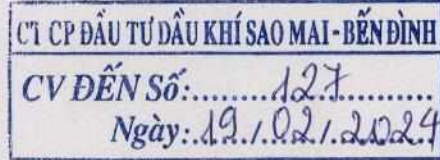 CT CP ĐẦU TƯ DẦU KHÍ SAO MAI - BẾN ĐÌNH
CV ĐẾN Số:........127..........
Ngày:.19./.02/.2024